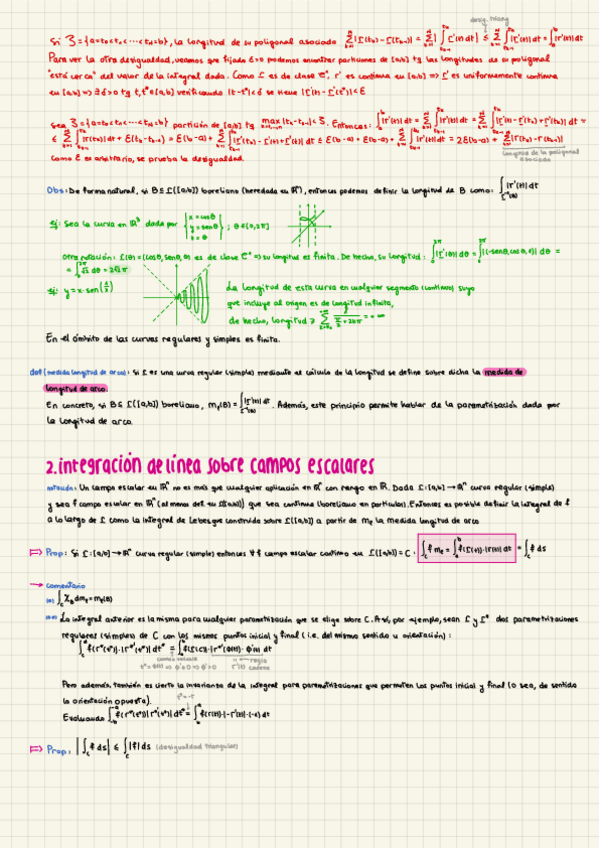 desig. triang
Si 3 = {a=t₀<t₁<···<t_n=b}, la longitud de su poligonal asociada Σ|r(t_k)-r(t_{k-1})| = Σ|∫r'(t)dt| ≤ Σ∫|r'(t)|dt = ∫|r'(t)|dt
Para ver la otra desigualdad, veamos que fijado ε>0 podemos encontrar particiones de [a,b] tq las longitudes de su poligonal
"está cerca" del valor de la integral dada. Como r es de clase C¹, r' es continua en [a,b] => r' es uniformemente continua
en [a,b] => ∃ δ>0 tq t,t*∈[a,b] verificando |t-t*|<δ se tiene |r'(t)-r'(t*)|<ε
sea 3={a=t₀<t₁<···<t_n=b} partición de [a,b] tq max|t_k-t_{k-1}|<δ. Entonces:
como ε es arbitrario, se prueba la desigualdad.
longitud de la poligonal
asociada
Obs: De forma natural, si B⊆r([a,b]) boreliano (heredado en ℝⁿ), entonces podemos definir la longitud de B como: ∫|r'(t)|dt
Ej: Sea la curva en ℝ³ dada por {x=cosθ y=senθ z=θ ; θ∈[0,2π]
otra notación: r(θ)=(cosθ,senθ,θ) es de clase C¹ => su longitud es finita. De hecho, su longitud: ∫|r'(θ)|dθ = ∫|(-senθ,cosθ,1)|dθ =
= ∫√2 dθ = 2√2π
Ej: y=x·sen(1/x)
La longitud de esta curva en cualquier segmento (continuo) suyo
que incluye al origen es de longitud infinita,
de hecho, longitud ≥
En el ámbito de las curvas regulares y simples es finita.
def (medida longitud de arco): si r es una curva regular (simple) mediante el cálculo de la longitud se define sobre dicha la medida de
longitud de arco.
En concreto, si B⊆r([a,b]) boreliano, m_r(B)=∫|r'(t)|dt. Además, este principio permite hablar de la parametrización dada por
la longitud de arco
2. integración de línea sobre campos escalares
notación: Un campo escalar en ℝⁿ no es más que cualquier aplicación en ℝⁿ con rango en ℝ. Dada r:[a,b]→ℝⁿ curva regular (simple)
y sea f campo escalar en ℝⁿ (al menos def. en r([a,b])) que sea continua (boreliano en particular). Entonces es posible definir la integral de f
a lo largo de r como la integral de Lebesgue construida sobre r([a,b]) a partir de m_r la medida longitud de arco
⇒ Prop: Si r:[a,b]→ℝⁿ curva regular (simple) entonces ∀ f campo escalar continuo en r([a,b])=C : ∫f m_r = ∫f(r(t))·|r'(t)| dt = ∫f ds
→ comentario
(i) ∫χ_B dm_r = m_r(B)
(ii) La integral anterior es la misma para cualquier parametrización que se elige sobre C. Así, por ejemplo, sean r y r* dos parametrizaciones
regulares (simples) de C con los mismos puntos inicial y final (i.e. del mismo sentido u orientación):
cambio variable
regla
cadena
Pero además, también es cierto la invarianza de la integral para parametrizaciones que permuten los puntos inicial y final (o sea, de sentido
la orientación opuesta).
t*=-t
Evaluando
⇒ Prop: |∫f ds| ≤ ∫|f| ds (desigualdad triangular)